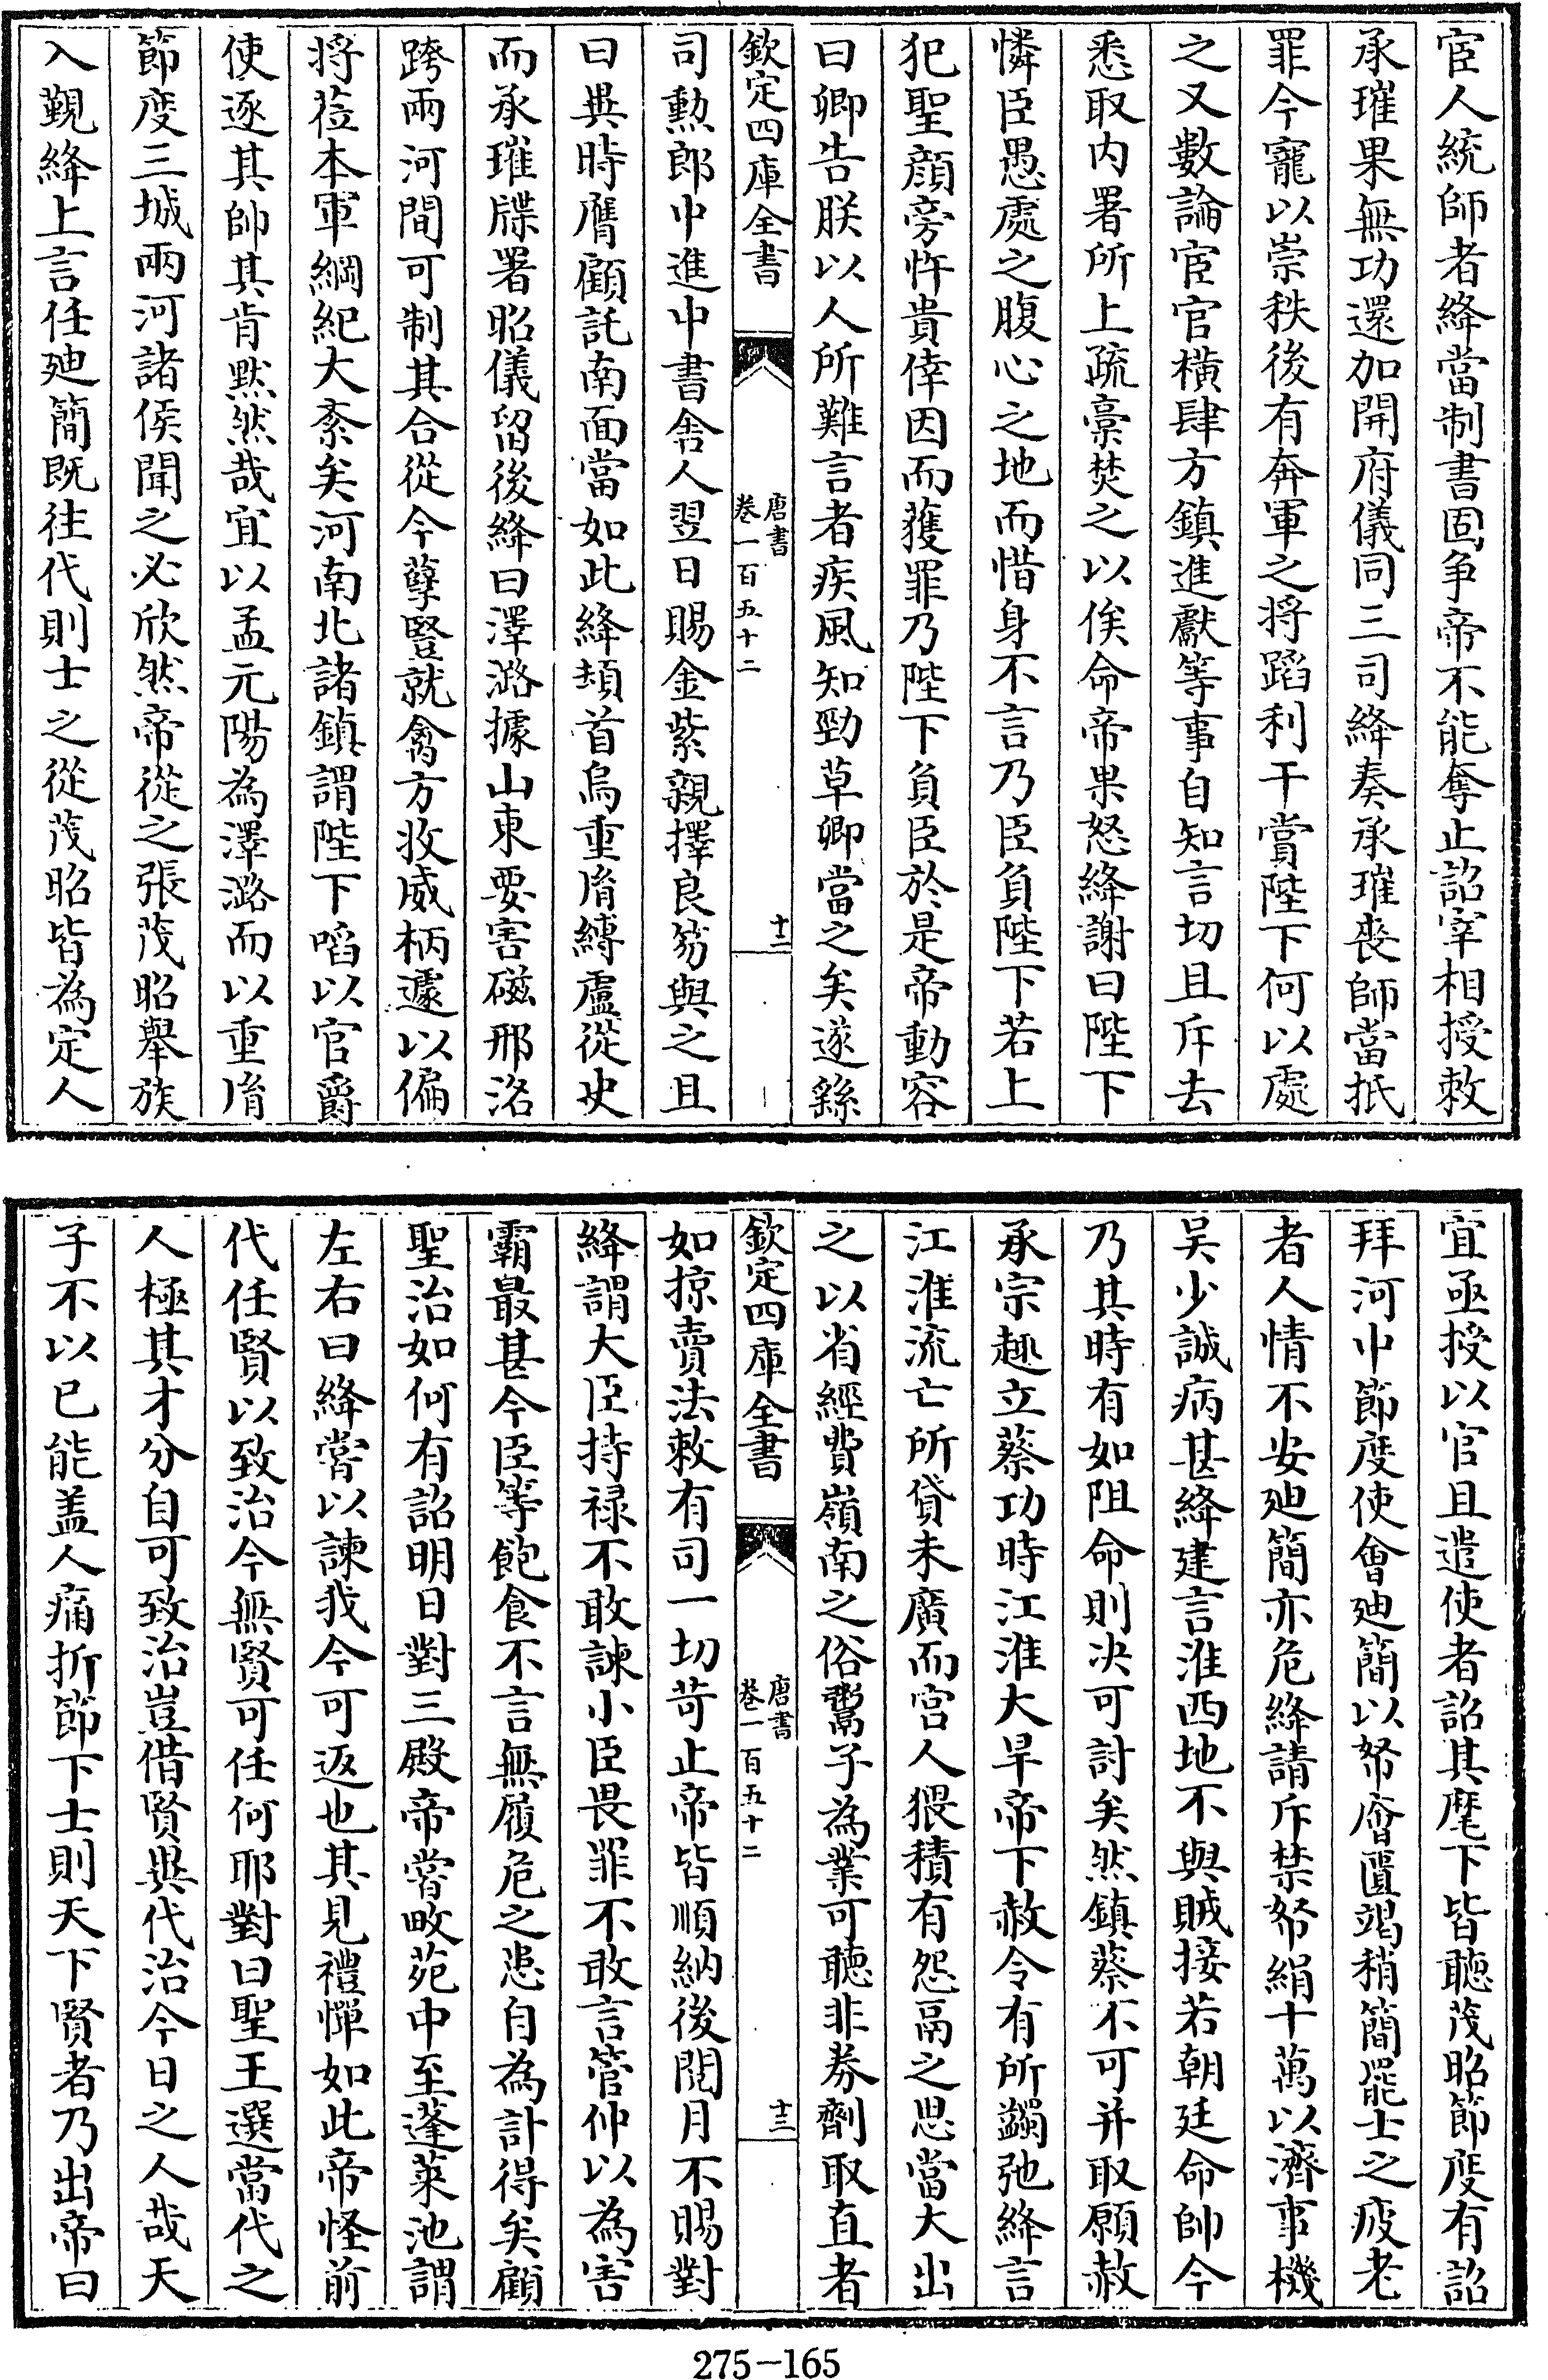 宦人統師者絳當制書固争帝不能奪止詔宰相授敕
承璀果無功還加開府儀同三司絳奏承璀喪師當抵
罪今寵以崇秩後有奔軍之将蹈利干賞陛下何以處
之又數論宦官横肆方鎮進獻等事自知言切且斥去
悉取内署所上疏稾焚之以俟命帝果怒絳謝曰陛下
憐臣愚處之腹心之地而惜身不言乃臣負陛下若上
犯聖顔旁忤貴倖因而獲罪乃陛下負臣於是帝動容
曰卿告朕以人所難言者疾風知勁草卿當之矣遂繇
欽定四庫全書
唐書
卷一百五十二
十二
司勲郎中進中書舍人翌日賜金紫親擇良笏與之且
曰異時膺顧託南面當如此絳頓首烏重脩縛盧從史
而承璀牒署昭儀留後絳曰澤潞據山東要害磁邢洺
跨兩河間可制其合從今孽豎就禽方收威柄遽以偏
将莅本軍綱紀大紊矣河南北諸鎮謂陛下啗以官爵
使逐其帥其肯黙然哉宜以孟元陽為澤潞而以重脩
節度三城兩河諸侯聞之必欣然帝從之張茂昭舉族
入覲絳上言任廸簡既往代則士之從茂昭皆為定人
宜亟授以官且遣使者詔其麾下皆聽茂昭節度有詔
拜河中節度使會廸簡以帑廥匱竭稍簡罷士之疲老
者人情不安廸簡亦危絳請斥禁帑絹十萬以濟事機
吴少誠病甚絳建言淮西地不與賊接若朝廷命帥今
乃其時有如阻命則决可討矣然鎮蔡不可并取願赦
承宗趣立蔡功時江淮大旱帝下赦令有所蠲弛絳言
江淮流亡所貸未廣而宫人猥積有怨鬲之思當大出
之以省經費嶺南之俗鬻子為業可聽非劵劑取直者
欽定四庫全書
唐書
卷一百五十二
十三
如掠賣法敕有司一切苛止帝皆順納後閲月不賜對
絳謂大臣持禄不敢諫小臣畏罪不敢言管仲以為害
霸最甚今臣等飽食不言無履危之患自為計得矣顧
聖治如何有詔明日對三殿帝嘗畋苑中至蓬萊池謂
左右曰絳嘗以諫我今可返也其見禮憚如此帝怪前
代任賢以致治今無賢可任何耶對曰聖王選當代之
人極其才分自可致治豈借賢異代治今日之人哉天
子不以已能盖人痛折節下士則天下賢者乃出帝曰
275-165